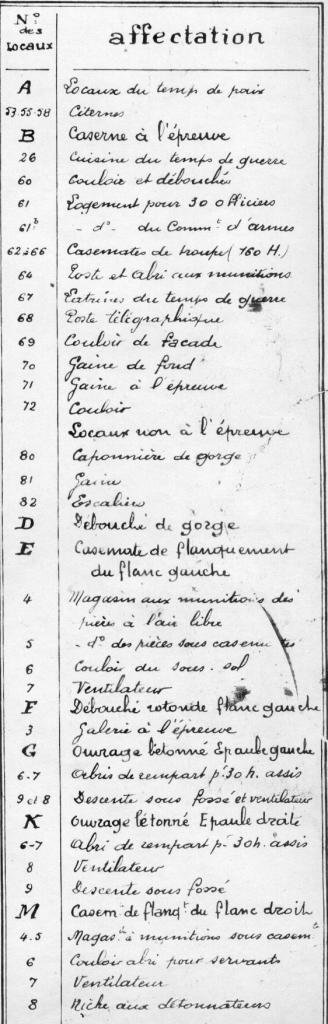 Nº des Locaux affectation
A Locaux du temps de paix
53.55.58 Citernes
B Caserne à l'épreuve
26 Cuisine du temps de guerre
60 Couloir et débouchés
61 Logement pour 30 Officiers
61ᵇ - dº- du Commᵗ d'armes
62à66 Casemates de troupe (160 H.)
64 Poste et Abri aux munitions
67 Latrines du temps de guerre
68 Poste télégraphique
69 Couloir de façade
70 Gaine de fond
71 Gaine à l'épreuve
72 Couloir
Locaux non à l'épreuve
80 Caponnière de gorge
81 Gaine
82 Escalier
D Débouché de gorge
E Casemate de flanquement
du flanc gauche
4 Magasin aux munitions des
pièces à l'air libre
5 - dº des pièces sous casemates
6 Couloir du sous-sol
7 Ventilateur
F Débouché rotonde flanc gauche
3 Galerie à l'épreuve
G Ouvrage bétonné Epaule gauche
6-7 Abris de rempart pʳ 30 h. assis
9 et 8 Descente sous fossé et ventilateur
K Ouvrage bétonné Epaule droite
6-7 Abri de rempart pʳ 30h. assis
8 Ventilateur
9 Descente sous fossé
M Casemᵗᵉ de flanqᵗ du flanc droit
4.5 Magasⁿ à munitions sous casemᵗᵉ
6 Couloir abri pour servants
7 Ventilateur
8 Niche aux détonnateurs